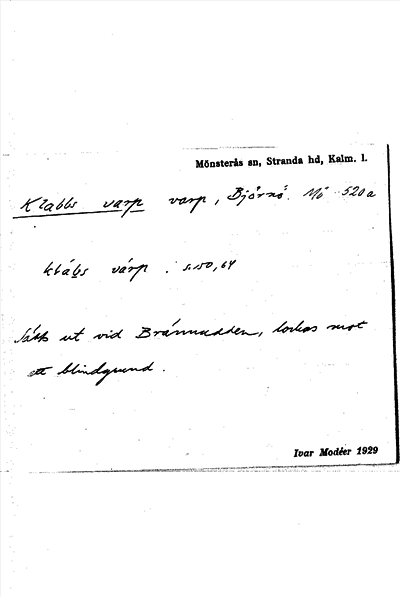 Mönsterås sn, Stranda hd, Kalm. l.
Klabbs varp varp, Björnö. Mö 520a
klábs várp. s. 150, 64
Sätts ut vid Brännudden, lockas mot
ett blindgrund.
Ivar Modéer 1929